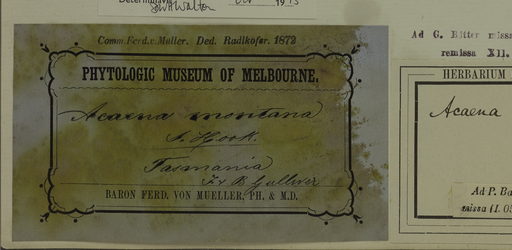 Determinavit
Comm. Ferd. v. Müller. Ded. Radlkofer. 1872
PHYTOLOGIC MUSEUM OF MELBOURNE.
Acaena montana
J. Hook.
Tasmania
BARON FERD. VON MUELLER, PH. & M.D.
Ad G. Bitter missa
remissa XII.
HERBARIUM
Acaena
Ad P. Ba
missa (1. 05